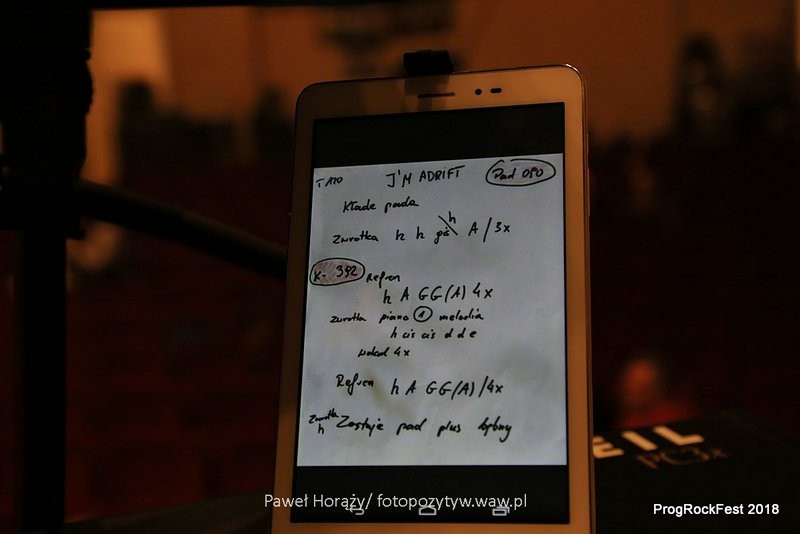 T 120 I'M ADRIFT Pad 080
Kładę pada
h
Zwrotka h h gis A / 3x
K- 392 Refren
h A G G (A) 4x
zwrotka piano 1 melodia
h cis cis d d e
wokal 4x
Refren h A G G (A) / 4x
Zwrotka h Zostaje pad plus bębny
EIL
PC3x
Paweł Horąży/ fotopozytyw.waw.pl
ProgRockFest 2018